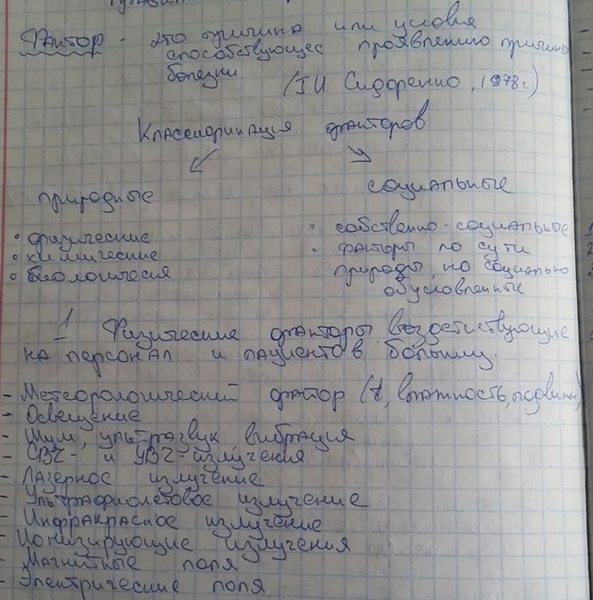 Фактор - это причина или условия
способствующее проявлению причины
болезни
(Г.И Сидоренко, 1978г)
Классификация факторов
природные социальные
физические
химические
биологичесия
собственно-социальные
факторы по сути
природы, но социально
обусловленные
1 Физические факторы, воздействующие
на персонал и пациентов больниц.
- Метеорологический фактор (t, влажность, подвижн)
- Освещение
- Шум, ультразвук, вибрация
- СВЧ- и УВЧ-излучения
- Лазерное излучение
- Ультрафиолетовое излучение
- Инфракрасное излучение
- Ионизирующие излучения
- Магнитные поля
- Электрические поля